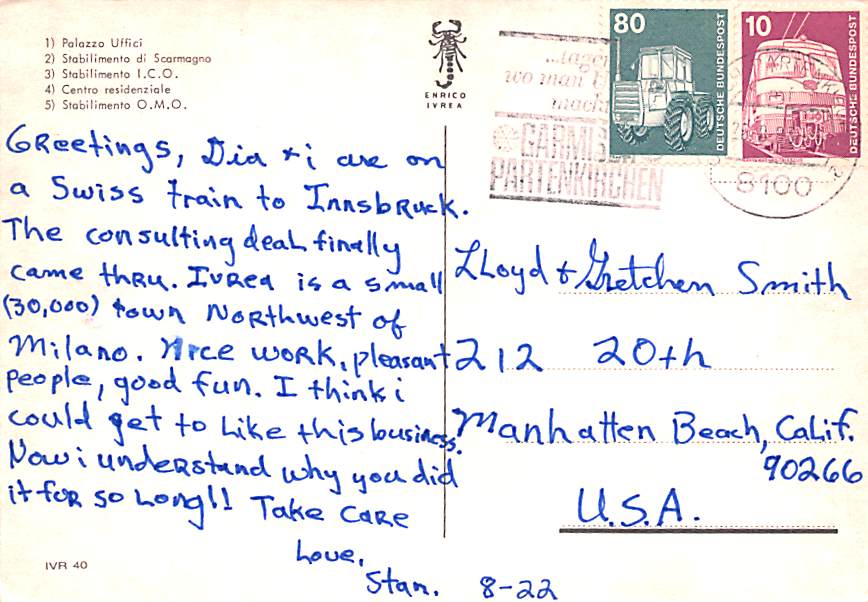 1) Palazzo Uffici
2) Stabilimento di Scarmagno
3) Stabilimento I.C.O.
4) Centro residenziale
5) Stabilimento O.M.O.
ENRICO
IVREA
...tagen
wo man
mach
GARMISCH
PARTENKIRCHEN
80
DEUTSCHE BUNDESPOST
10
DEUTSCHE BUNDESPOST
8100
Greetings, Dia + i are on
a Swiss train to Innsbruck.
The consulting deal finally
came thru. Ivrea is a small
(30,000) town Northwest of
Milano. Nice work, pleasant
people, good fun. I think i
could get to like this business.
Now i understand why you did
it for so long!! Take care
Love,
Stan. 8-22
Lloyd & Gretchen Smith
212 20th
Manhatten Beach, Calif.
90266
U.S.A.
IVR 40